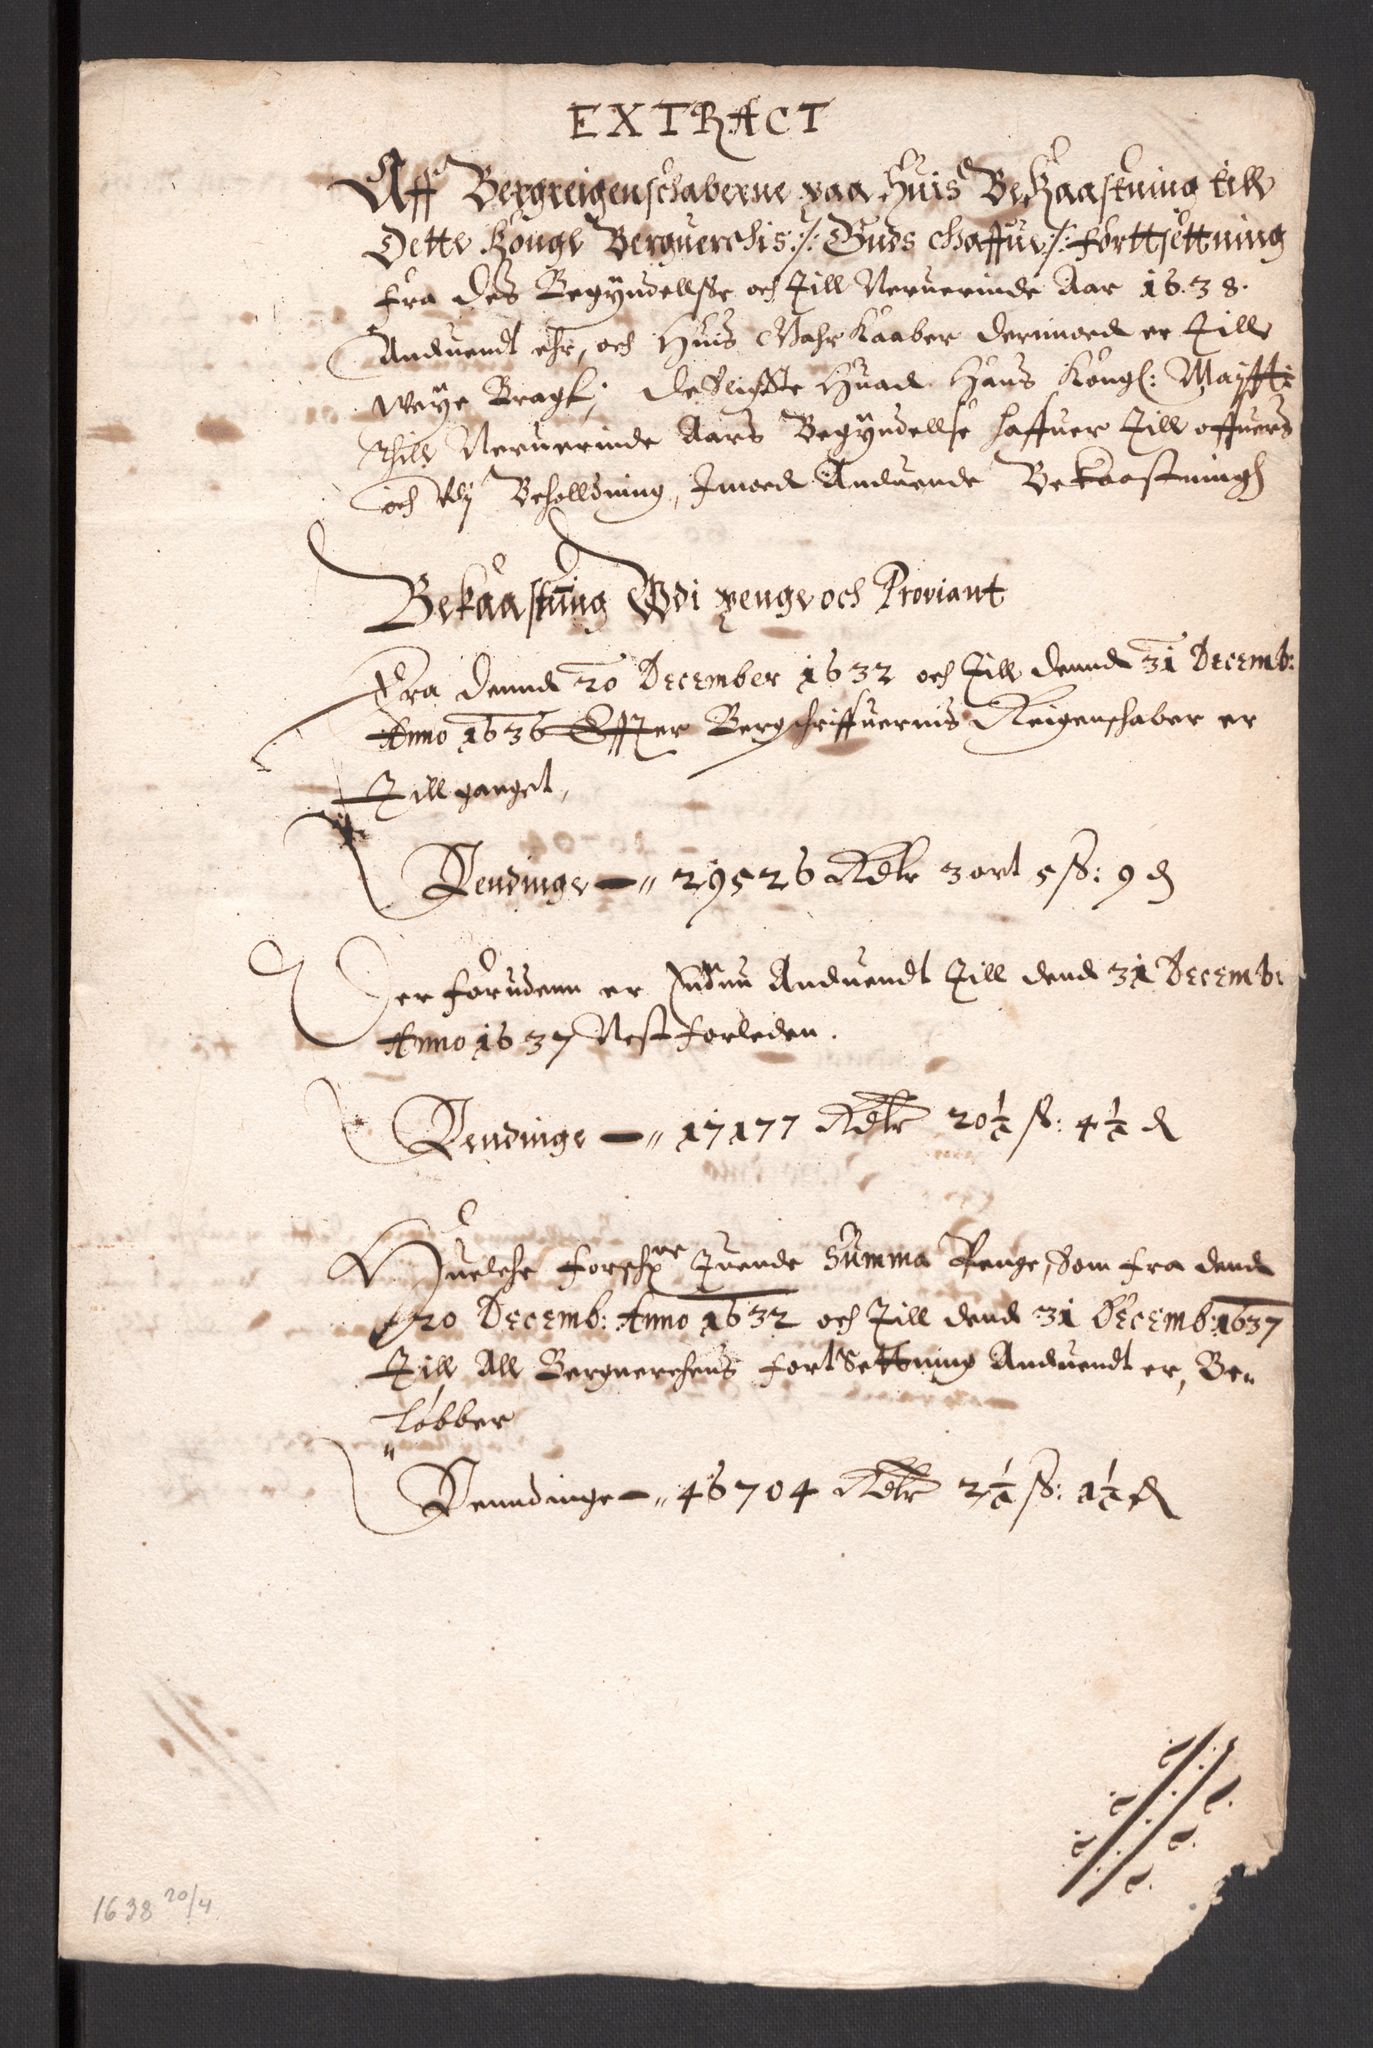 EXTRACT
Aff Bergreigenschaberne paa Huis Bekaastning till
Dette Konge Berguerchis ./. Guds Gaffue ./. forttsettning
fra des Begÿndellsse och till Neruerinde Aar 1638.
Anduendt ehr, och Huis Wahr kaaber derimoed er till
Weÿe Bragt; desligste Huad Hans Kongl: Maÿtt:
thill Neruerinde Aars Begÿndellse haffuer till offuers
och Beholldning, Imoed Anduende Bekaastningh
Bekaastning Wdi penge och Proviant
Fra dennd 20 December 1632 och till dennd 31 Decemb:
Anno 1636 Effter Bergschriffuernis Reigenschaber er
tillganget,
Pendinge — 29526 Rdlr 3 ort 5 ß: 9 d
Der forudenn er Anduendt till dend 31 Decemb:
Anno 1637 Nest forleden.
Pendinge — 17177 Rdlr 20½ ß: 4½ d
Huelche forschreffne Summa Penge, som fra dend
20 Decemb: Anno 1632 och till dend 31 Decemb: 1637
till All Berguerchens fortsettning Anduendt er, Be-
løbber
Penndinge — 46704 Rdlr 2½ ß: 1½ d
1638 20/4